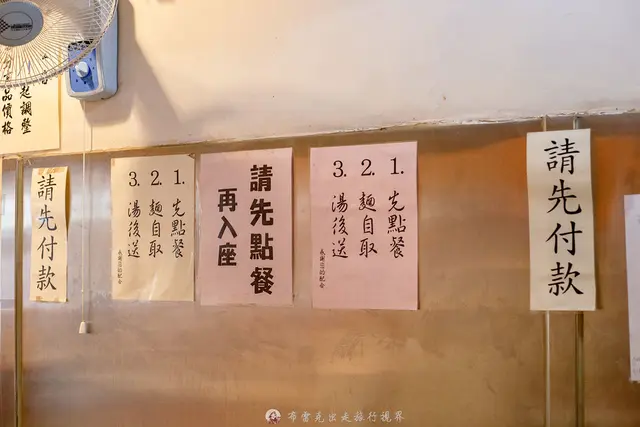 起調整
品價格
請先付款
1. 先點餐
2. 麵自取
3. 湯後送
感謝您的配合
請先點餐
再入座
1. 先點餐
2. 麵自取
3. 湯後送
感謝您的配合
請先付款
布雷克出走旅行視界